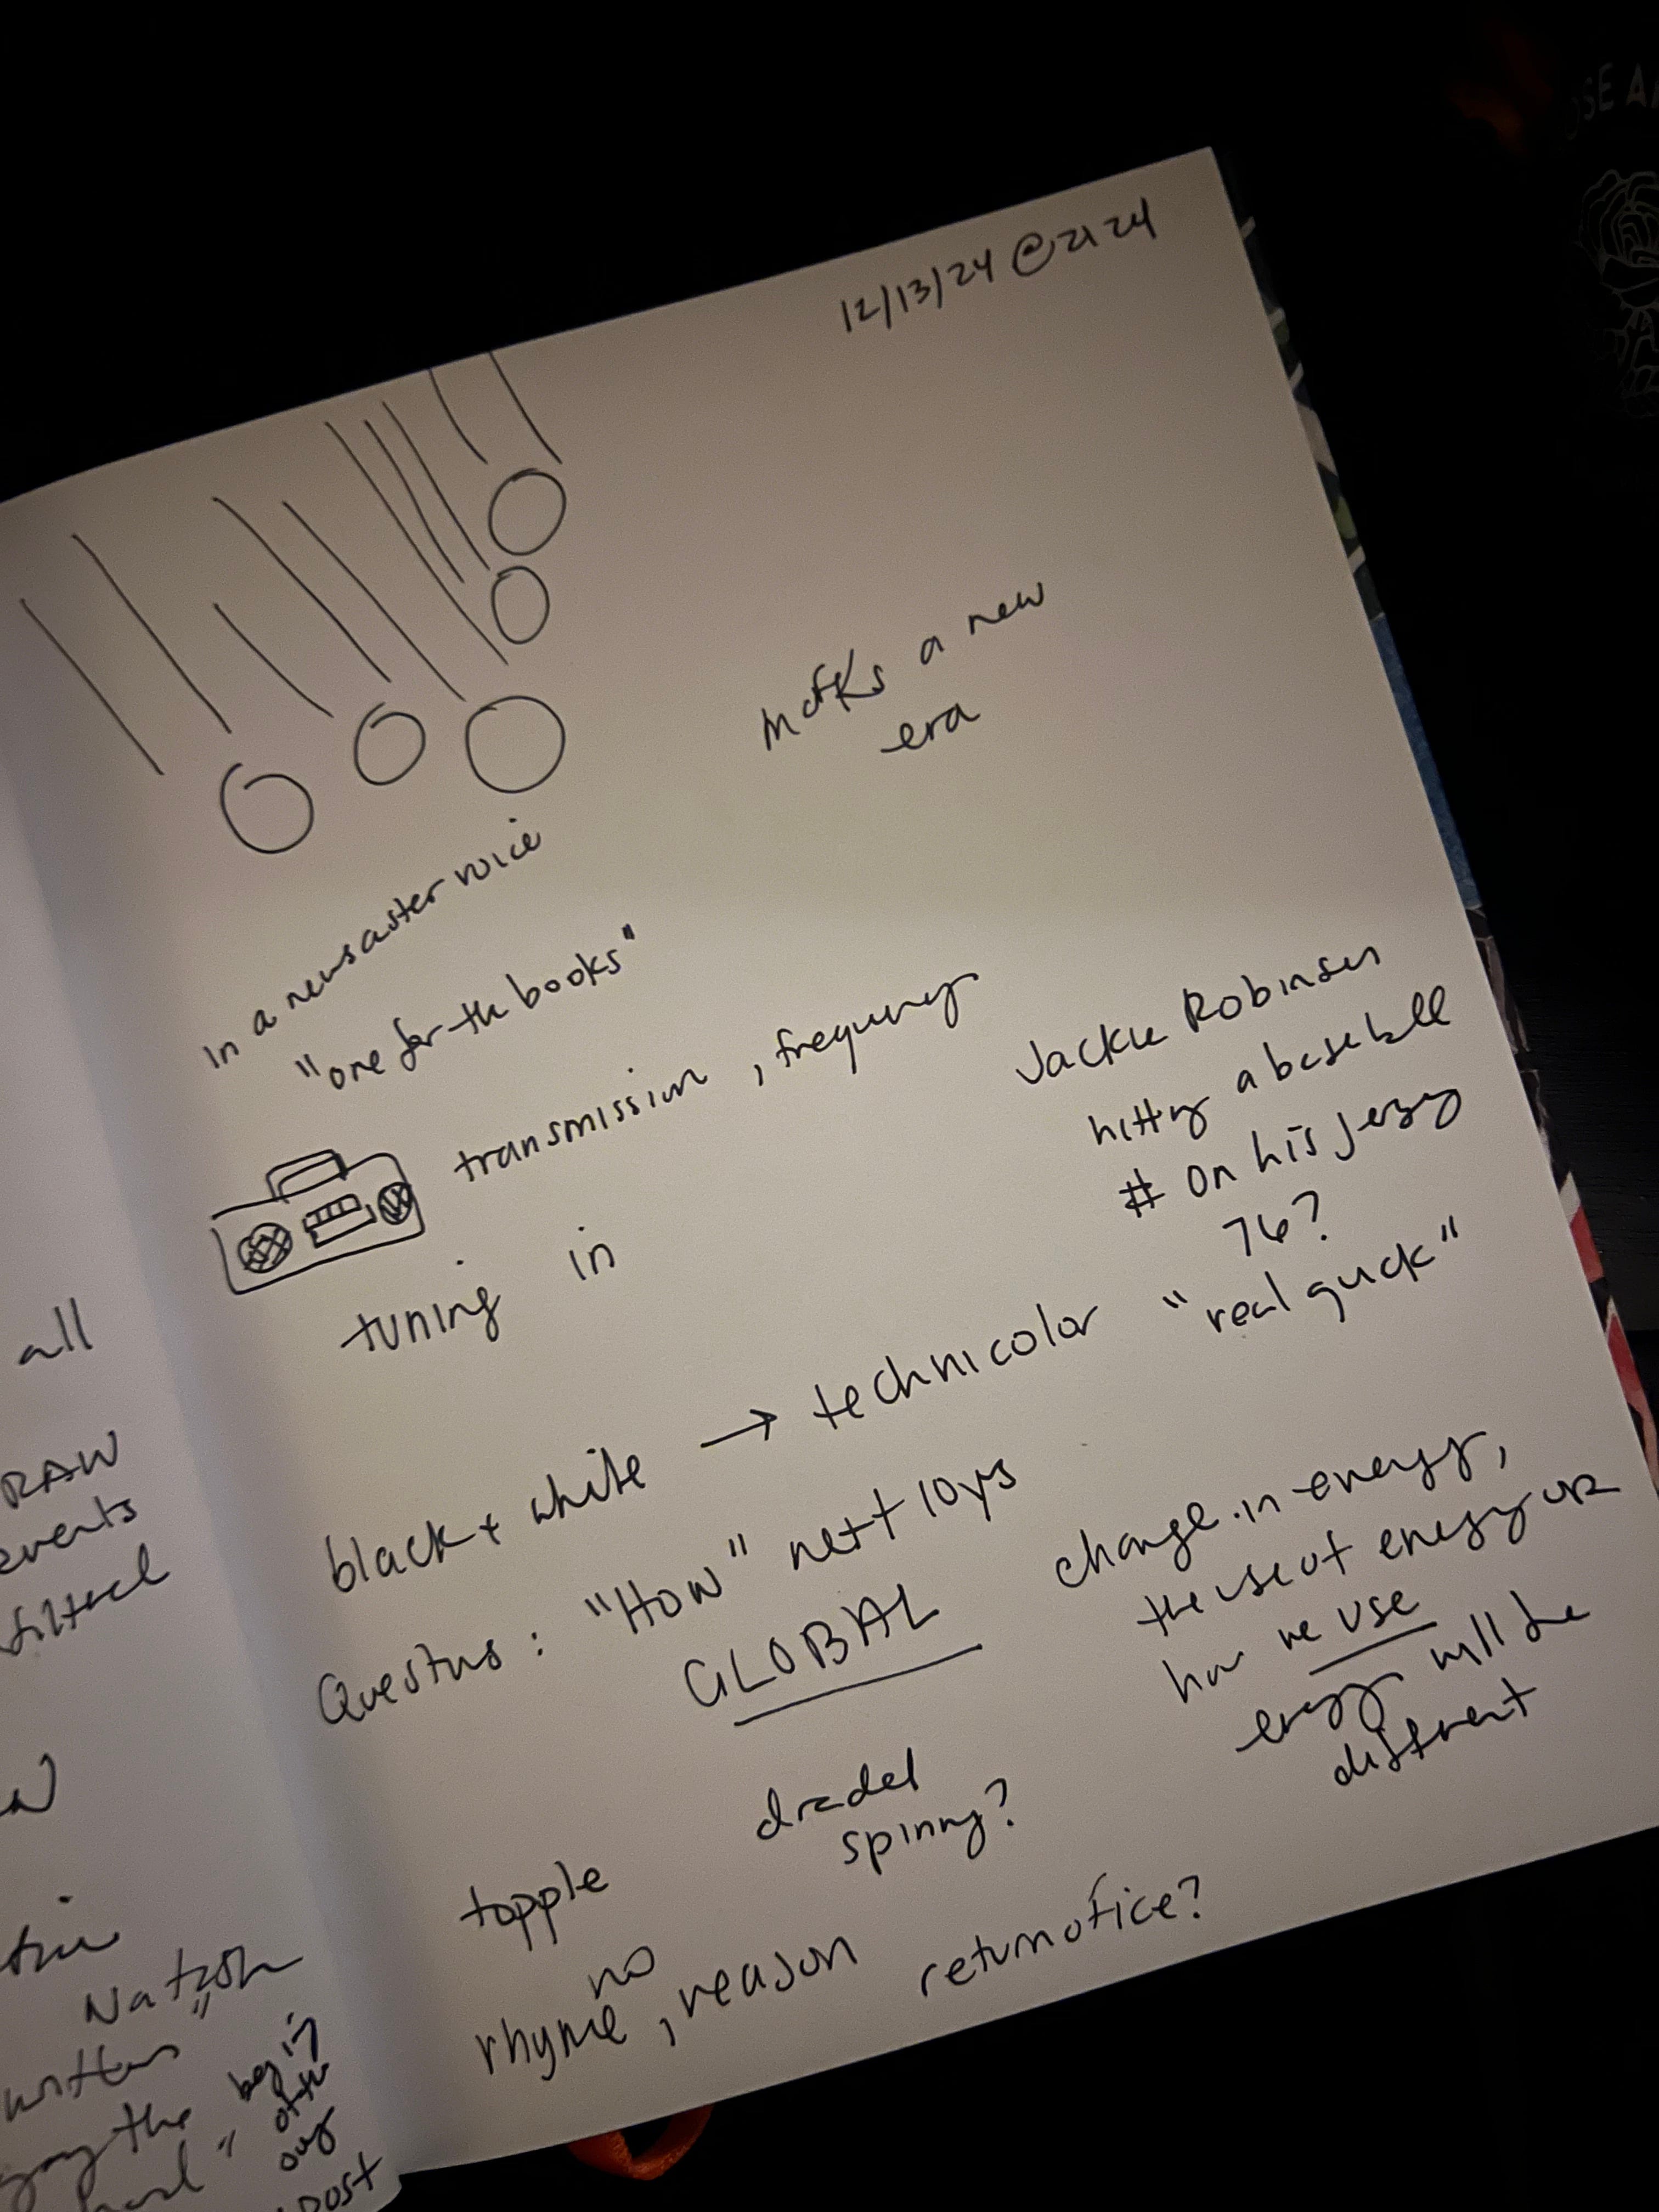 12/13/24 @ 2124
marks a new
era
In a newscaster voice
"one for the books"
transmission, frequency
tuning in
Jackie Robinson
hitting a baseball
# on his jersey
76?
black + white → technicolor "real quick"
Questions: "How" next 10 yrs
GLOBAL
change in energy,
the use of energy or
how we use
energy will be
different
dradel
spinning?
topple
no
rhyme, reason
return office?
all
RAW
events
filtered
Nation
written"
the
begin
of the
our
post
SE A